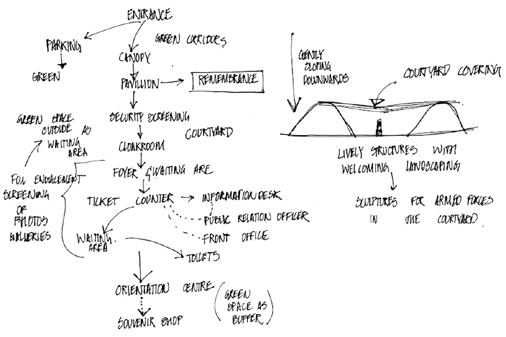 ENTRANCE
PARKING
GREEN CORRIDORS
CANOPY
GREEN
PAVILLION
REMEMBRANCE
SECURITY SCREENING
GREEN SPACE
OUTSIDE AS
WAITING
AREA
COURTYARD
CLOAKROOM
FOYER & WAITING ARE
SCREENING
OF
PHOTOS
GALLERIES
TICKET COUNTER
INFORMATION DESK
PUBLIC RELATION OFFICER
FRONT OFFICE
WAITING
AREA
TOILETS
ORIENTATION CENTRE
(GREEN
SPACE AS
BUFFER)
SOUVENIR SHOP
GENTLY
SLOPING
DOWNWARDS
COURTYARD COVERING
LIVELY STRUCTURES WITH
WELCOMING LANDSCAPING
SCULPTURES FOR ARMED FORCES
IN THE COURTYARD